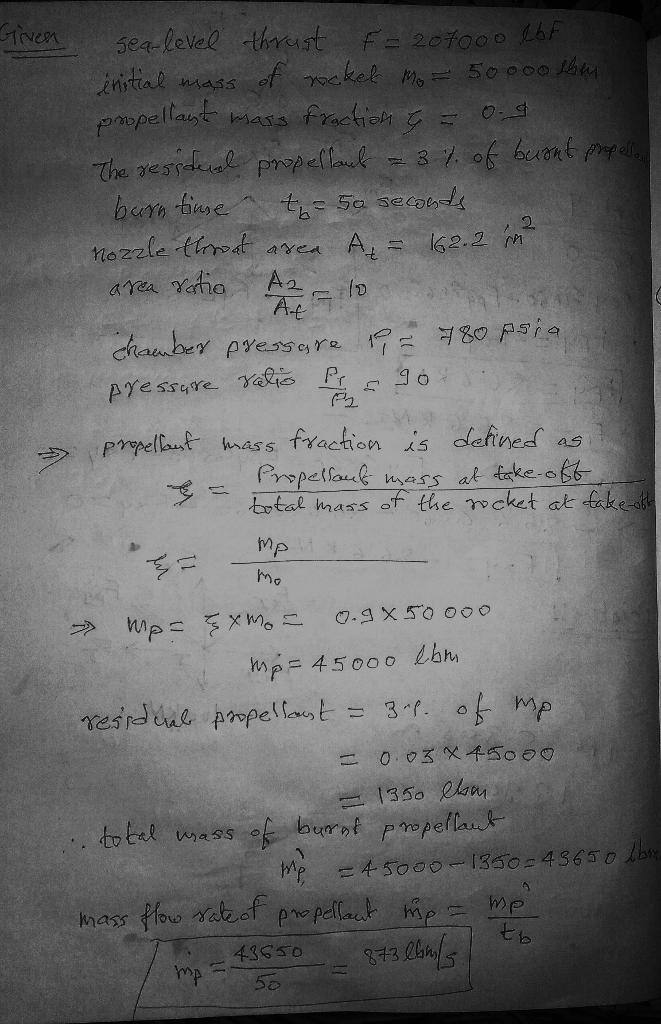 Given sea-level thrust F = 207000 lbf
initial mass of rocket m₀ = 50000 lbm
propellant mass fraction ξ = 0.9
The residual propellant = 3 % of burnt
burn time t_b = 50 seconds
nozzle throat area A_t = 162.2 in²
area ratio A₂/A_t = 10
chamber pressure P₁ = 780 psia
pressure ratio P₁/P₂ = 90
⇒ propellant mass fraction is defined as
ξ = Propellant mass at take-off / total mass of the rocket at take-off
ξ = mp / m₀
⇒ mp = ξ × m₀ = 0.9 × 50 000
mp = 45000 lbm
residual propellant = 3 % of mp
= 0.03 × 45000
= 1350 lbm
∴ total mass of burnt propellant
mp` = 45000 - 1350 = 43650 lbm
mass flow rate of propellant ṁp = mp` / t_b
ṁp = 43650 / 50 = 873 lbm/s